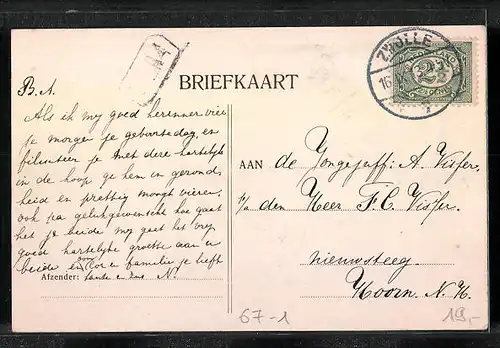 B. A.
Als ik mij goed herinner vier
je morgen je geboortedag, en
feliciteer je met deze hartelijk
in de hoop je hem en gezond,
heid en prettig moogt vieren,
ook pa gelukgewenscht hoe gaat
het je beide mij gaat het vrij
goed hartelijke groette aan u
beide en familie je liefh
Afzender: tante N.
BRIEFKAART
ZWOLLE
16
2½
CENT
AAN de Jongejuff: A. Visser,
p/a den Heer F. C. Visser.
nieuwsteeg.
Hoorn. N. H.
67-1
19,-